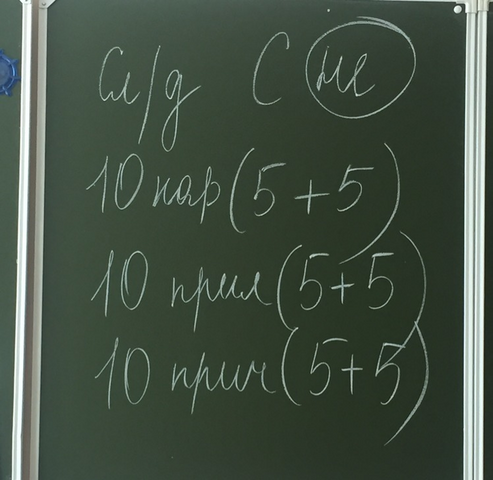 Сл/д С не
10 нар (5+5)
10 прил (5+5)
10 прич (5+5)